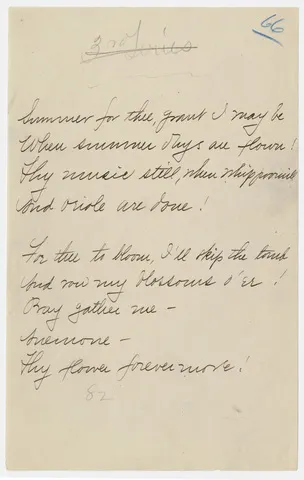 3rd Series
66
Summer for thee, grant I may be
When summer days are flown!
Thy music still, when Whippoorwill
And Oriole are done!
For thee to bloom, I'll skip the tomb
And row my blossoms o'er!
Pray gather me –
Anemone –
Thy flower forevermore!
82